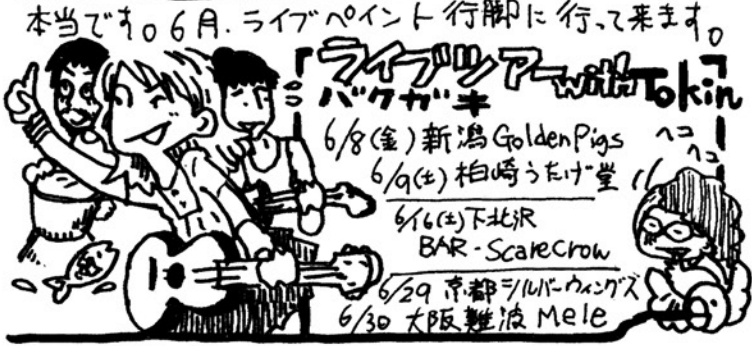 本当です。6月、ライブペイント行脚に行って来ます。
「ライブツアーwith Tokin」
バクガキ
6/8(金)新潟GoldenPigs
6/9(土)柏崎うたげ堂
ヘコ
ヘコ
6/16(土)下北沢
BAR-Scarecrow
6/29 京都シルバーウィングズ
6/30 大阪難波 Mele